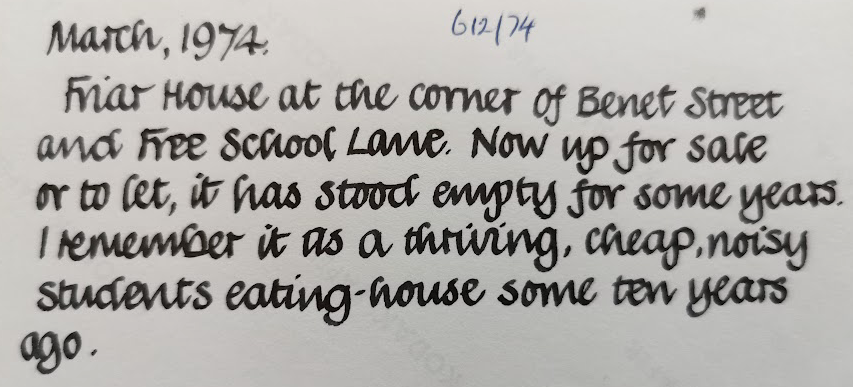 March, 1974.
612/74
Friar House at the corner of Benet Street
and Free School Lane. Now up for sale
or to let, it has stood empty for some years.
I remember it as a thriving, cheap, noisy
students eating-house some ten years
ago.